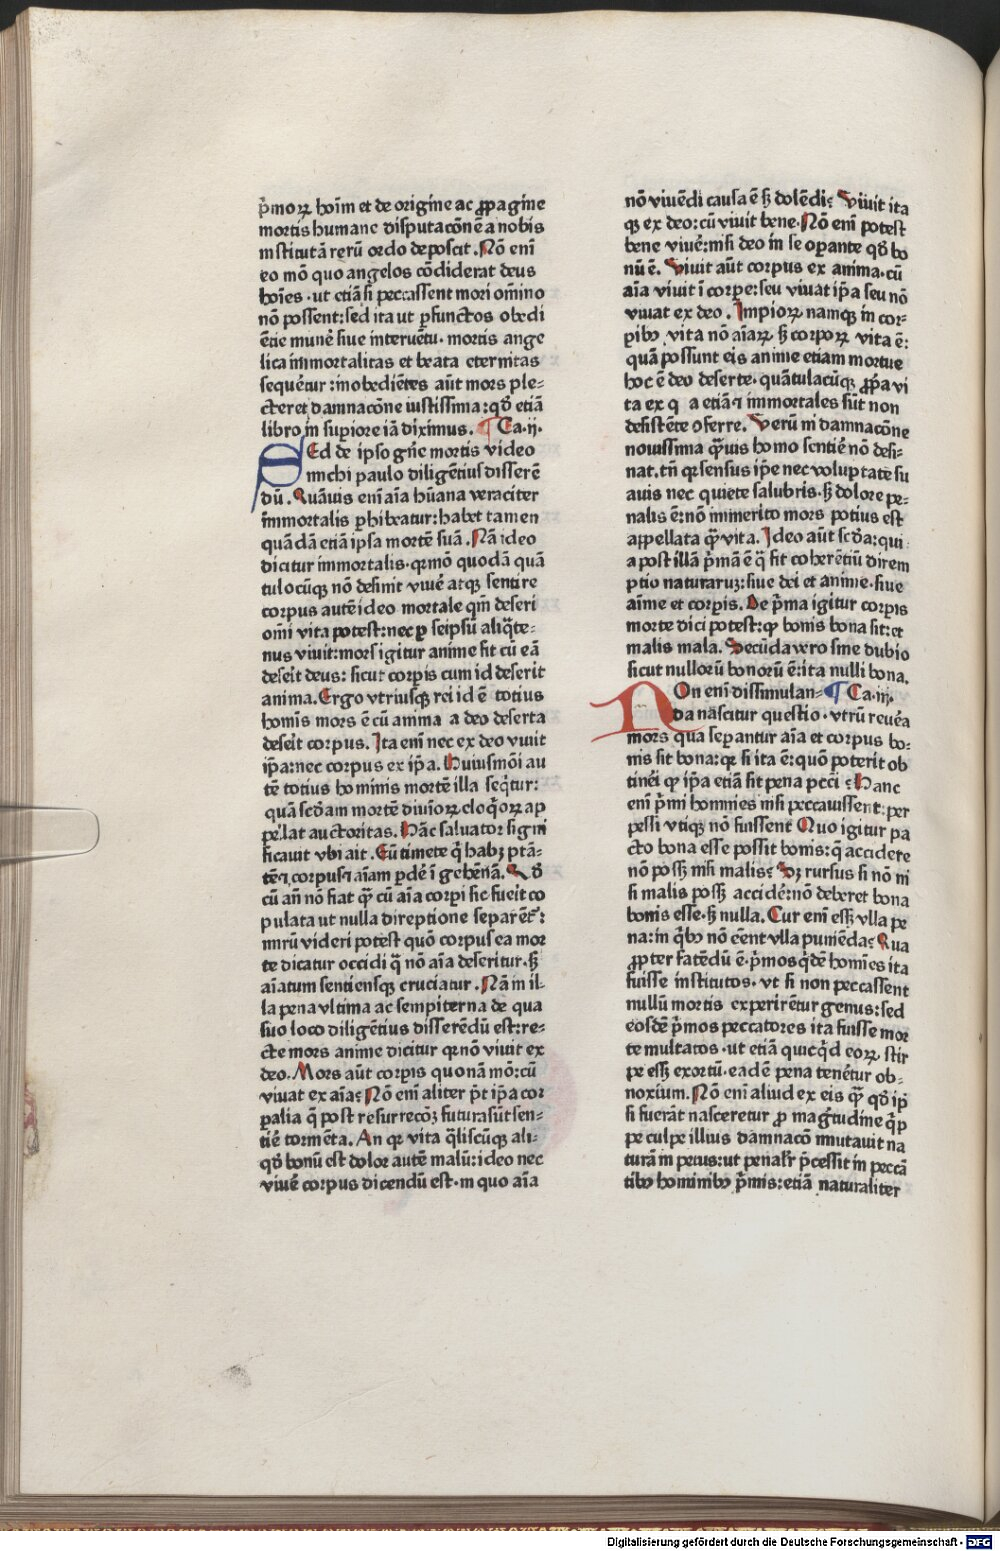 p̄moꝝ hoīm et de origine ac ꝓpagine
mortis humane disputacōn ē a nobis
instituta rerū ordo deposcit. Nō enī
eo mō quo angelos cōdiderat deus
hoīes · ut etiā si peccassent mori om̄ino
nō possent: sed ita ut ꝑfunctos obedi
ētie munē siue interuētu · mortis ange
lica īmmortalitas et beata eternitas
sequētur: inobediētes aūt mors ple⸗
cteret damnacōne iustissima: qď etiā
libro in suꝑiore iā diximus. ¶ Ca·ij·
SEd de ipso gn̄e mortis video
michi paulo diligētius disserē
dū. Quāuis enī aīa hūana veraciter
īmmortalis ꝑhibeatur: habet tamen
quādā etiā ipsa mortē suā. Nā ideo
dicitur immortalis· qꝛ mō quodā quā
tulocūqꝫ nō desinit viuē atqꝫ sentire
corpus autē ideo mortale qm̄ deseri
om̄i vita potest: nec ꝑ seipsū aliq̄te⸗
nus viuit: mors igitur anime fit cū eā
deseit deus: sicut corꝑis cum id deserit
anima. Ergo vtriusqꝫ rei id ē totius
homīs mors ē cū anima a deo deserta
deseit corpus. Ita enī nec ex deo viuit
ip̄a: nec corpus ex ip̄a. Huiusmōi au
tē totius hominis mortē illa seq̄tur:
quā scďam mortē diuīoꝝ eloq̄oꝝ ap
pellat auctoritas. Hāc saluator signi
ficauit vbi ait. Eū timete q̄ habꝫ ptā⸗
tē ⁊ corpus ⁊ aīam ꝑdē ī gehēnā. Qď
cū an̄ nō fiat qꝫ cū aīa corꝑi sic fueit co
pulata ut nulla direptione separēt̄:
mirū videri potest quō corpus ea mor
te dicatur occidi q̄ nō aīa deseritur · sꝫ
aīatum sentiensqꝫ cruciatur. Nā in il⸗
la pena vltima ac sempiterna de qua
suo loco diligētius disserēdū est: re⸗
cte mors anime dicitur qꝛ nō viuit ex
deo. Mors aūt corꝑis quonā mō: cū
viuat ex aīa? Nō enī aliter p̄t ip̄a cor
ꝑalia q̄ post resurrecoꝫ futura sūt sen⸗
tiē tormēta. An qꝛ vita q̄liscūqꝫ ali⸗
qď bonū est dolor autē malū: ideo nec
viuē corpus dicendū est · in quo aīa
nō viuēdi causa ē sꝫ dolēdi? Viuit ita
qꝫ ex deo: cū viuit bene · Nō enī potest
bene viuē: nisi deo in se oꝑante qď bo
nū ē. Viuit aūt corpus ex anima · cū
aīa viuit ī corꝑe: seu viuat ip̄a seu nō
viuat ex deo. Impioꝝ namqꝫ in cor⸗
ꝑibꝰ vita nō aīaꝝ sꝫ corpoꝝ vita ē:
quā possunt eis anime etiam mortue
hoc ē deo deserte · quātulacūqꝫ ꝓpa vi
ta ex q a etiā ⁊ immortales sūt non
desistēte ꝯferre. Verū in damnacōne
nouissima q̄uis homo sentiē nō desi⸗
nat. tn̄ qꝛ sensus ip̄e nec voluptate su
auis nec quiete salubris · sꝫ dolore pe⸗
nalis ē: nō immerito mors potius est
appellata qꝫ vita. Ideo aūt scďa: qui
a post illā p̄mā ē q̄ fit coherētiū direm
ptio naturaruꝫ: siue dei et anime · siue
aīme et corꝑis. De p̄ma igitur corꝑis
morte dici potest: ꝙ bonis bona sit: et
malis mala. Secūda vero sine dubio
sicut nullorū bonorū ē: ita nulli bona.
NOn enī dissimulan⸗ ¶ Ca·iij·
da nascitur questio · vtrū reuēa
mors qua seꝑantur aīa et corpus bo⸗
nis sit bona: qꝛ si ita ē: quō poterit ob
tinēi ꝙ ip̄a etiā sit pena pcci? Hanc
enī p̄mi homines nisi peccauissent: ꝑer
pessi vtiqꝫ nō fuissent Quo igitur pa
cto bona esse possit bonis: q̄ accidere
nō possꝫ nisi malis? Sꝫ rursus si nō ni
si malis possꝫ accidē: nō deberet bona
bonis esse · sꝫ nulla. Cur enī essꝫ vlla pe
na: in q̄bꝰ nō eēnt vlla puniēda? Qua
ꝓpter fatēdū ē · p̄mos q̄dē homīes ita
fuisse institutos · vt si non peccassent
nullū mortis experirētur genus: sed
eosdē p̄mos peccatores ita fuisse mor
te multatos · ut etiā quicq̄d eoꝝ stir
pe essꝫ exortū · eadē pena tenētur ob⸗
noxium. Nō enī aliud ex eis qꝫ qď ip̄i
si fuerāt nasceretur ꝓ maḡtudine q̄p
pe culpe illius damnacō mutauit na
turā in peius: ut penalr̄ p̄cessit in peccā
tibꝰ hominibꝰ p̄mis: etiā naturaliter
Digitalisierung gefördert durch die Deutsche Forschungsgemeinschaft - DFG